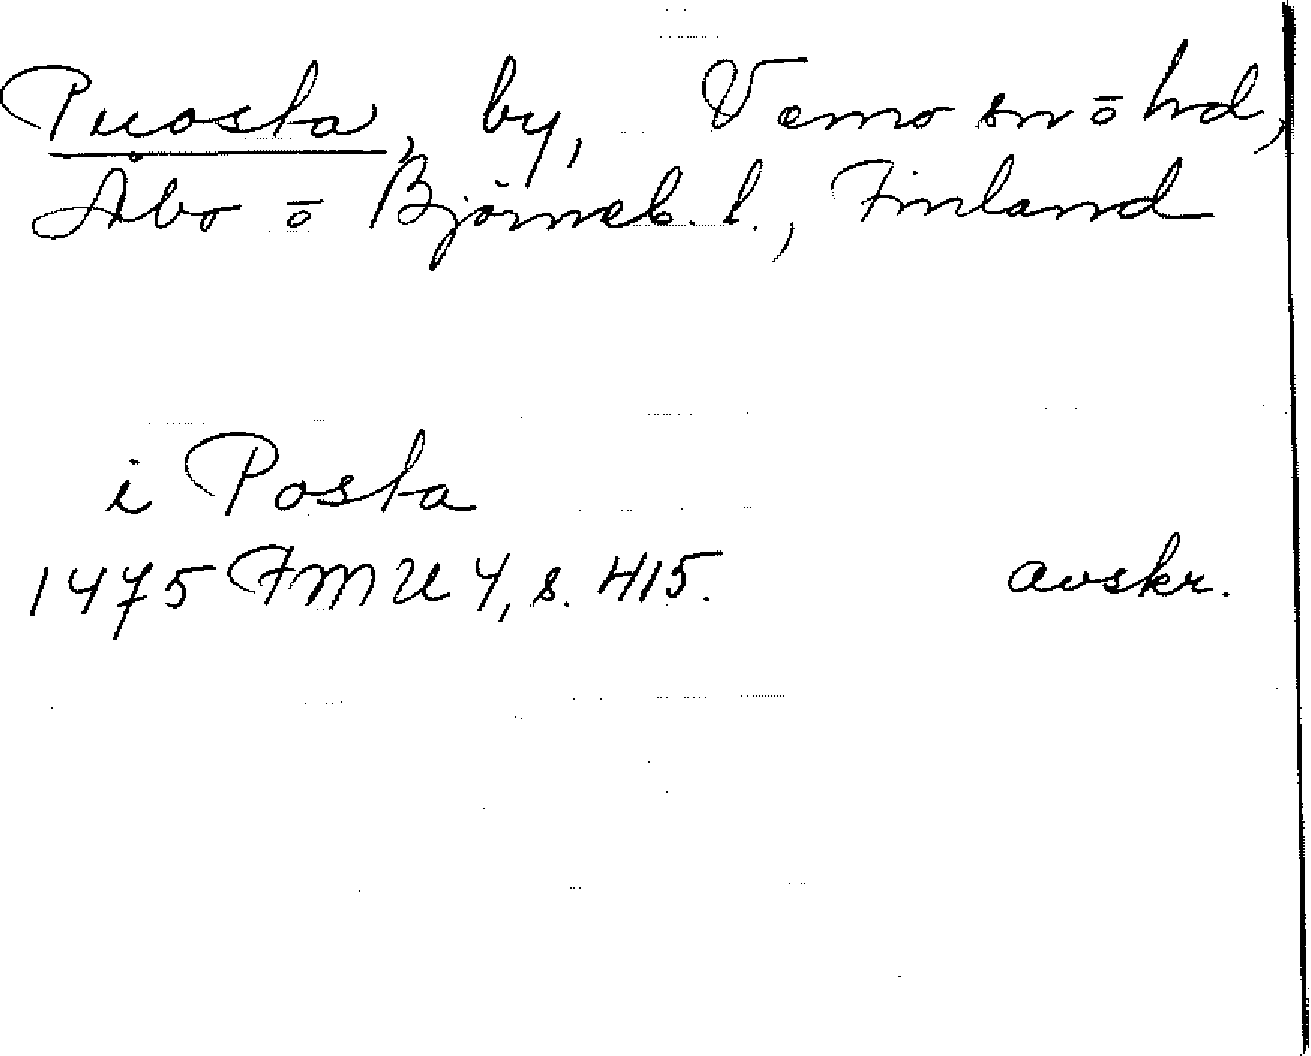 Puosta, by, Vemo sn ō hd,
Åbo ō Björneb. l., Finland
i Posta
1475 FMU 4, s. 415. avskr.